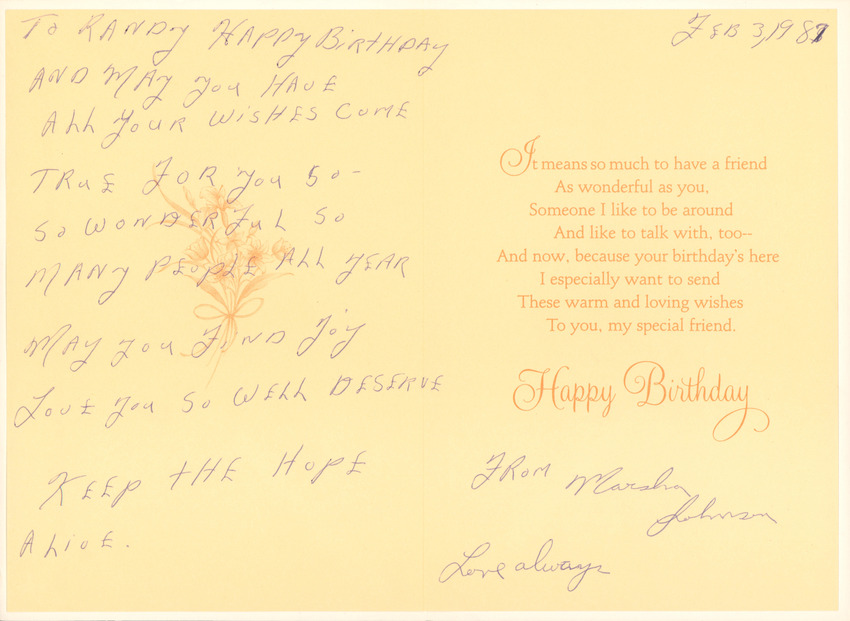 To RANDY HAPPY BIRTHDAY
AND MAY YOU HAVE
ALL YOUR WISHES COME
TRUE FOR YOU SO-
SO WONDERFUL SO
MANY PEOPLE ALL YEAR
MAY YOU FIND JOY
LOVE YOU SO WELL DESERVE
KEEP THE HOPE
ALIVE.
FEB
It means so much to have a friend
As wonderful as you,
Someone I like to be around
And like to talk with, too--
And now, because your birthday's here
I especially want to send
These warm and loving wishes
To you, my special friend.
Happy Birthday
From Marsha
Johnson
Love always